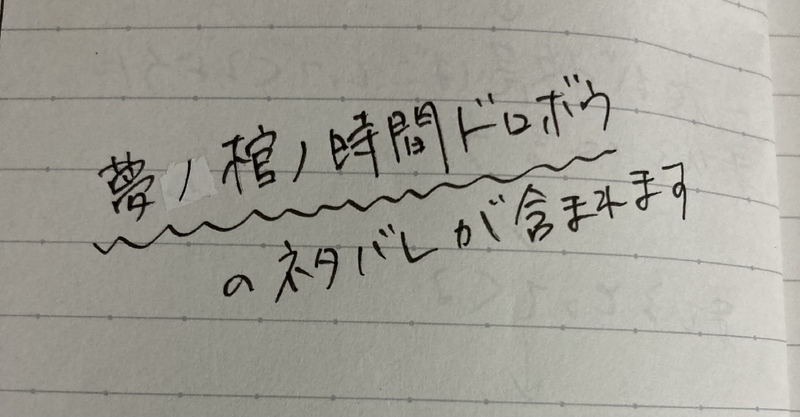 夢ノ棺ノ時間ドロボウ
のネタバレが含まれます